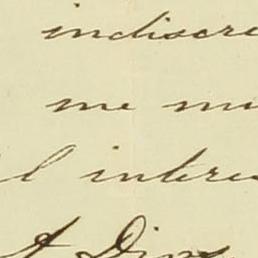 indiscre
me mu
l intere
A Dios